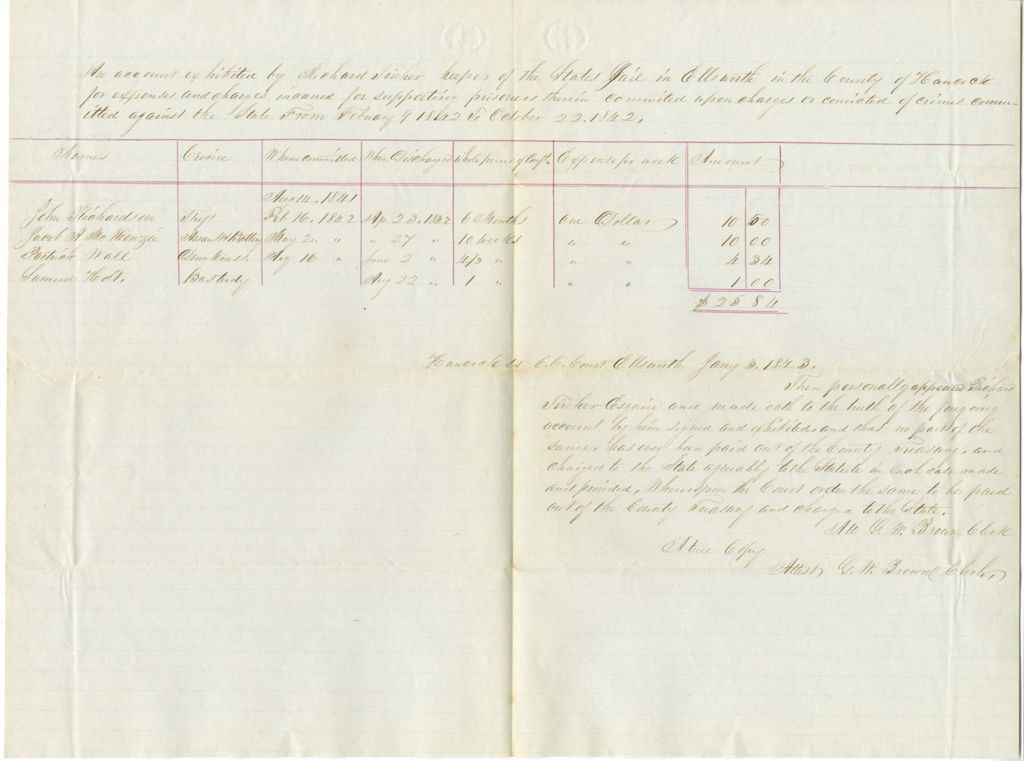 An account exhibited by Richard Tinker keeper of the States Jail in Ellsworth in the County of Hancock
for expenses and charges incurred for supporting prisoners therein committed upon charges or convicted of crimes comm-
itted against the State From February 9 1842 to October 22. 1842.
Names Crime When committed When Discharged Whole period of Expense per week Amount
Aug 14. 1841
John Richardson Theft Feb 16. 1842 Ap. 23. 1842 6 Months one Dollar 10 50
Jacob A McKenzie Assault & Battery May 2. " " 27 " 10 weeks " " 10 00
Patrick Wall Drunkness Aug 16 " June 2 " 4 3/7 " " " 4 34
Samuel Holt. Bastardy Aug 22 " 1 " " " 1 00
$ 25 84
Hancock ss C. C. Court Ellsworth Jany 3. 1843.
Then personally appeared Richard
Tinker Esquire and made oath to the truth of the foregoing
account by him signed and exhibited and that no part of the
same, has ever been paid out of the County Treasury, and
charged to the State agreeably to the Statute in such case made
and provided, Whereupon the Court order the same to be paid
out of the County Treasury and charged to the State.
Att G. W. Brown Clerk
A true Copy
Attest G. W. Brown Clerk